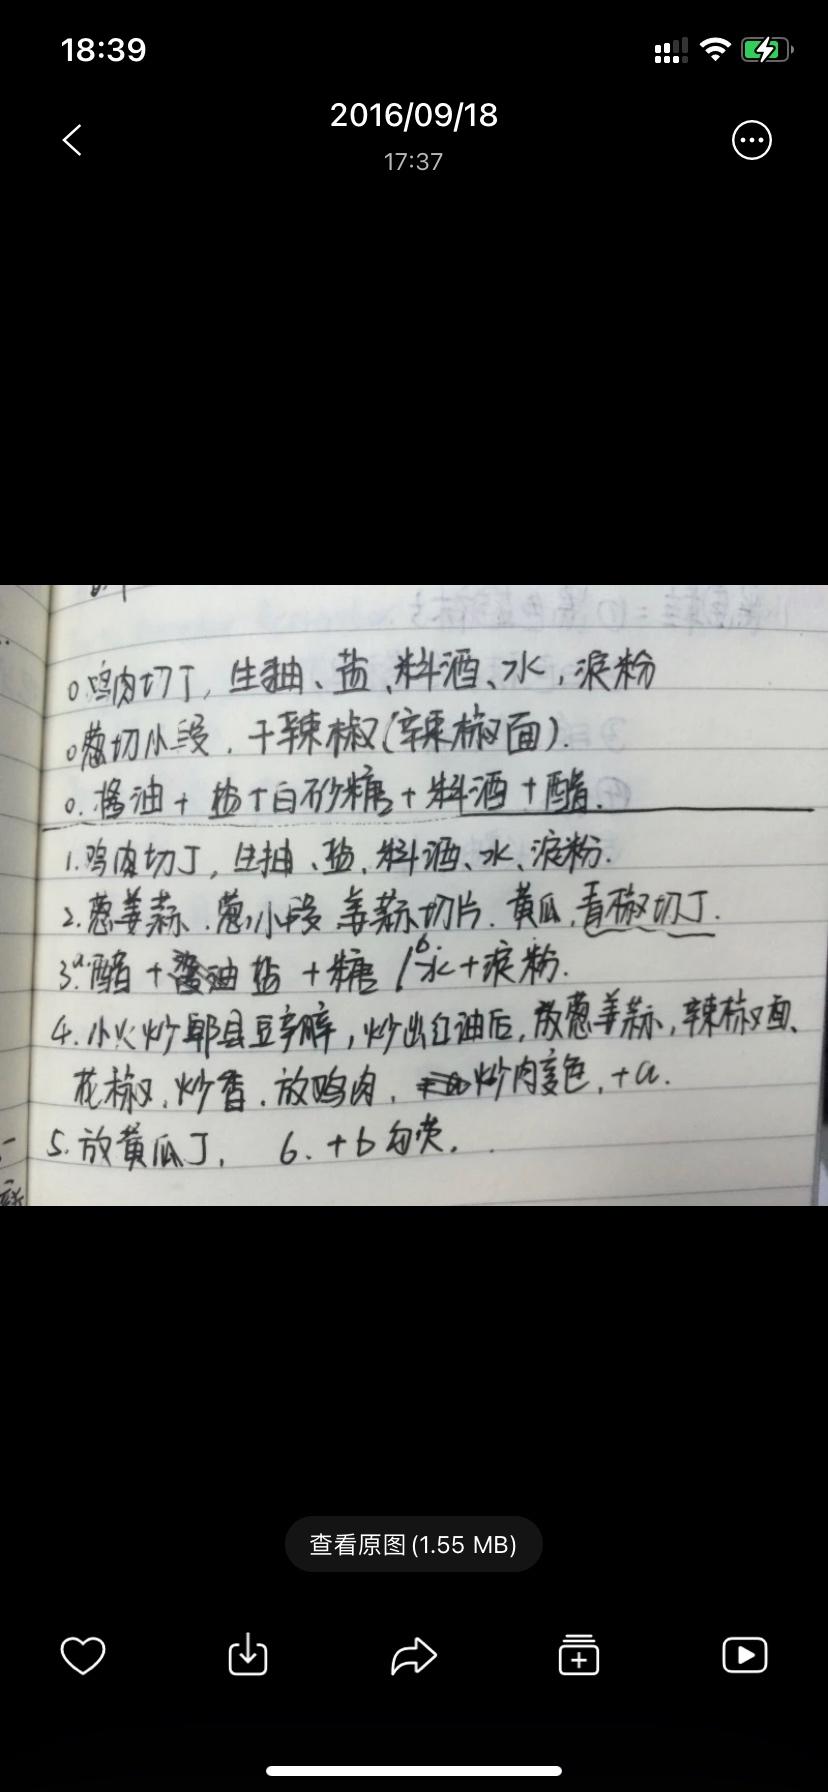 18:39
2016/09/18
17:37
0.鸡肉切丁，生抽、盐、料酒、水，淀粉
0葱切小段，干辣椒(辣椒面).
0.酱油+盐+白砂糖+料酒+醋.
1.鸡肉切丁，生抽、盐、料酒、水、淀粉.
2.葱姜蒜.葱小段 姜蒜切片.黄瓜,青椒切丁.
3.a.醋+油盐+糖/b水+淀粉.
4.小火炒郫县豆瓣，炒出红油后,放葱姜蒜,辣椒面、
花椒,炒香.放鸡肉,炒肉变色,+a.
5.放黄瓜丁, 6.+b勾芡.
查看原图(1.55 MB)